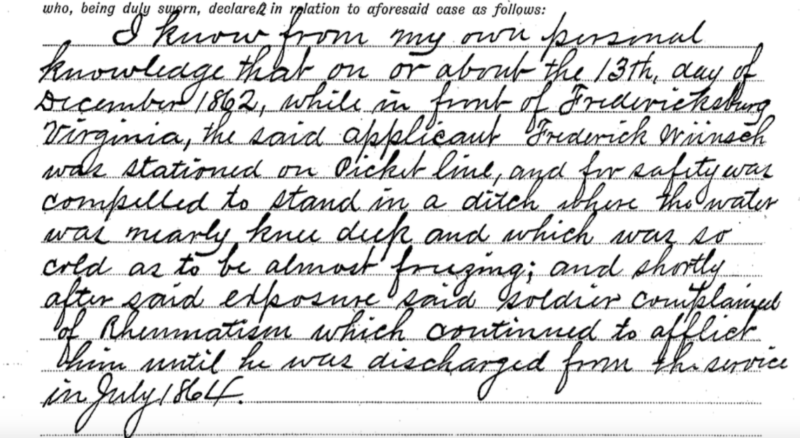 who, being duly sworn, declared in relation to aforesaid case as follows:
I know from my own personal
knowledge that on or about the 13th, day of
December 1862, while in front of Fredericksburg
Virginia, the said applicant Frederick Wünsch
was stationed on Picket line, and for safety was
compelled to stand in a ditch where the water
was nearly knee deep and which was so
cold as to be almost friezing; and shortly
after said exposure said soldier complained
of Rheumatism which continued to afflict
him until he was discharged from the service
in July 1864.